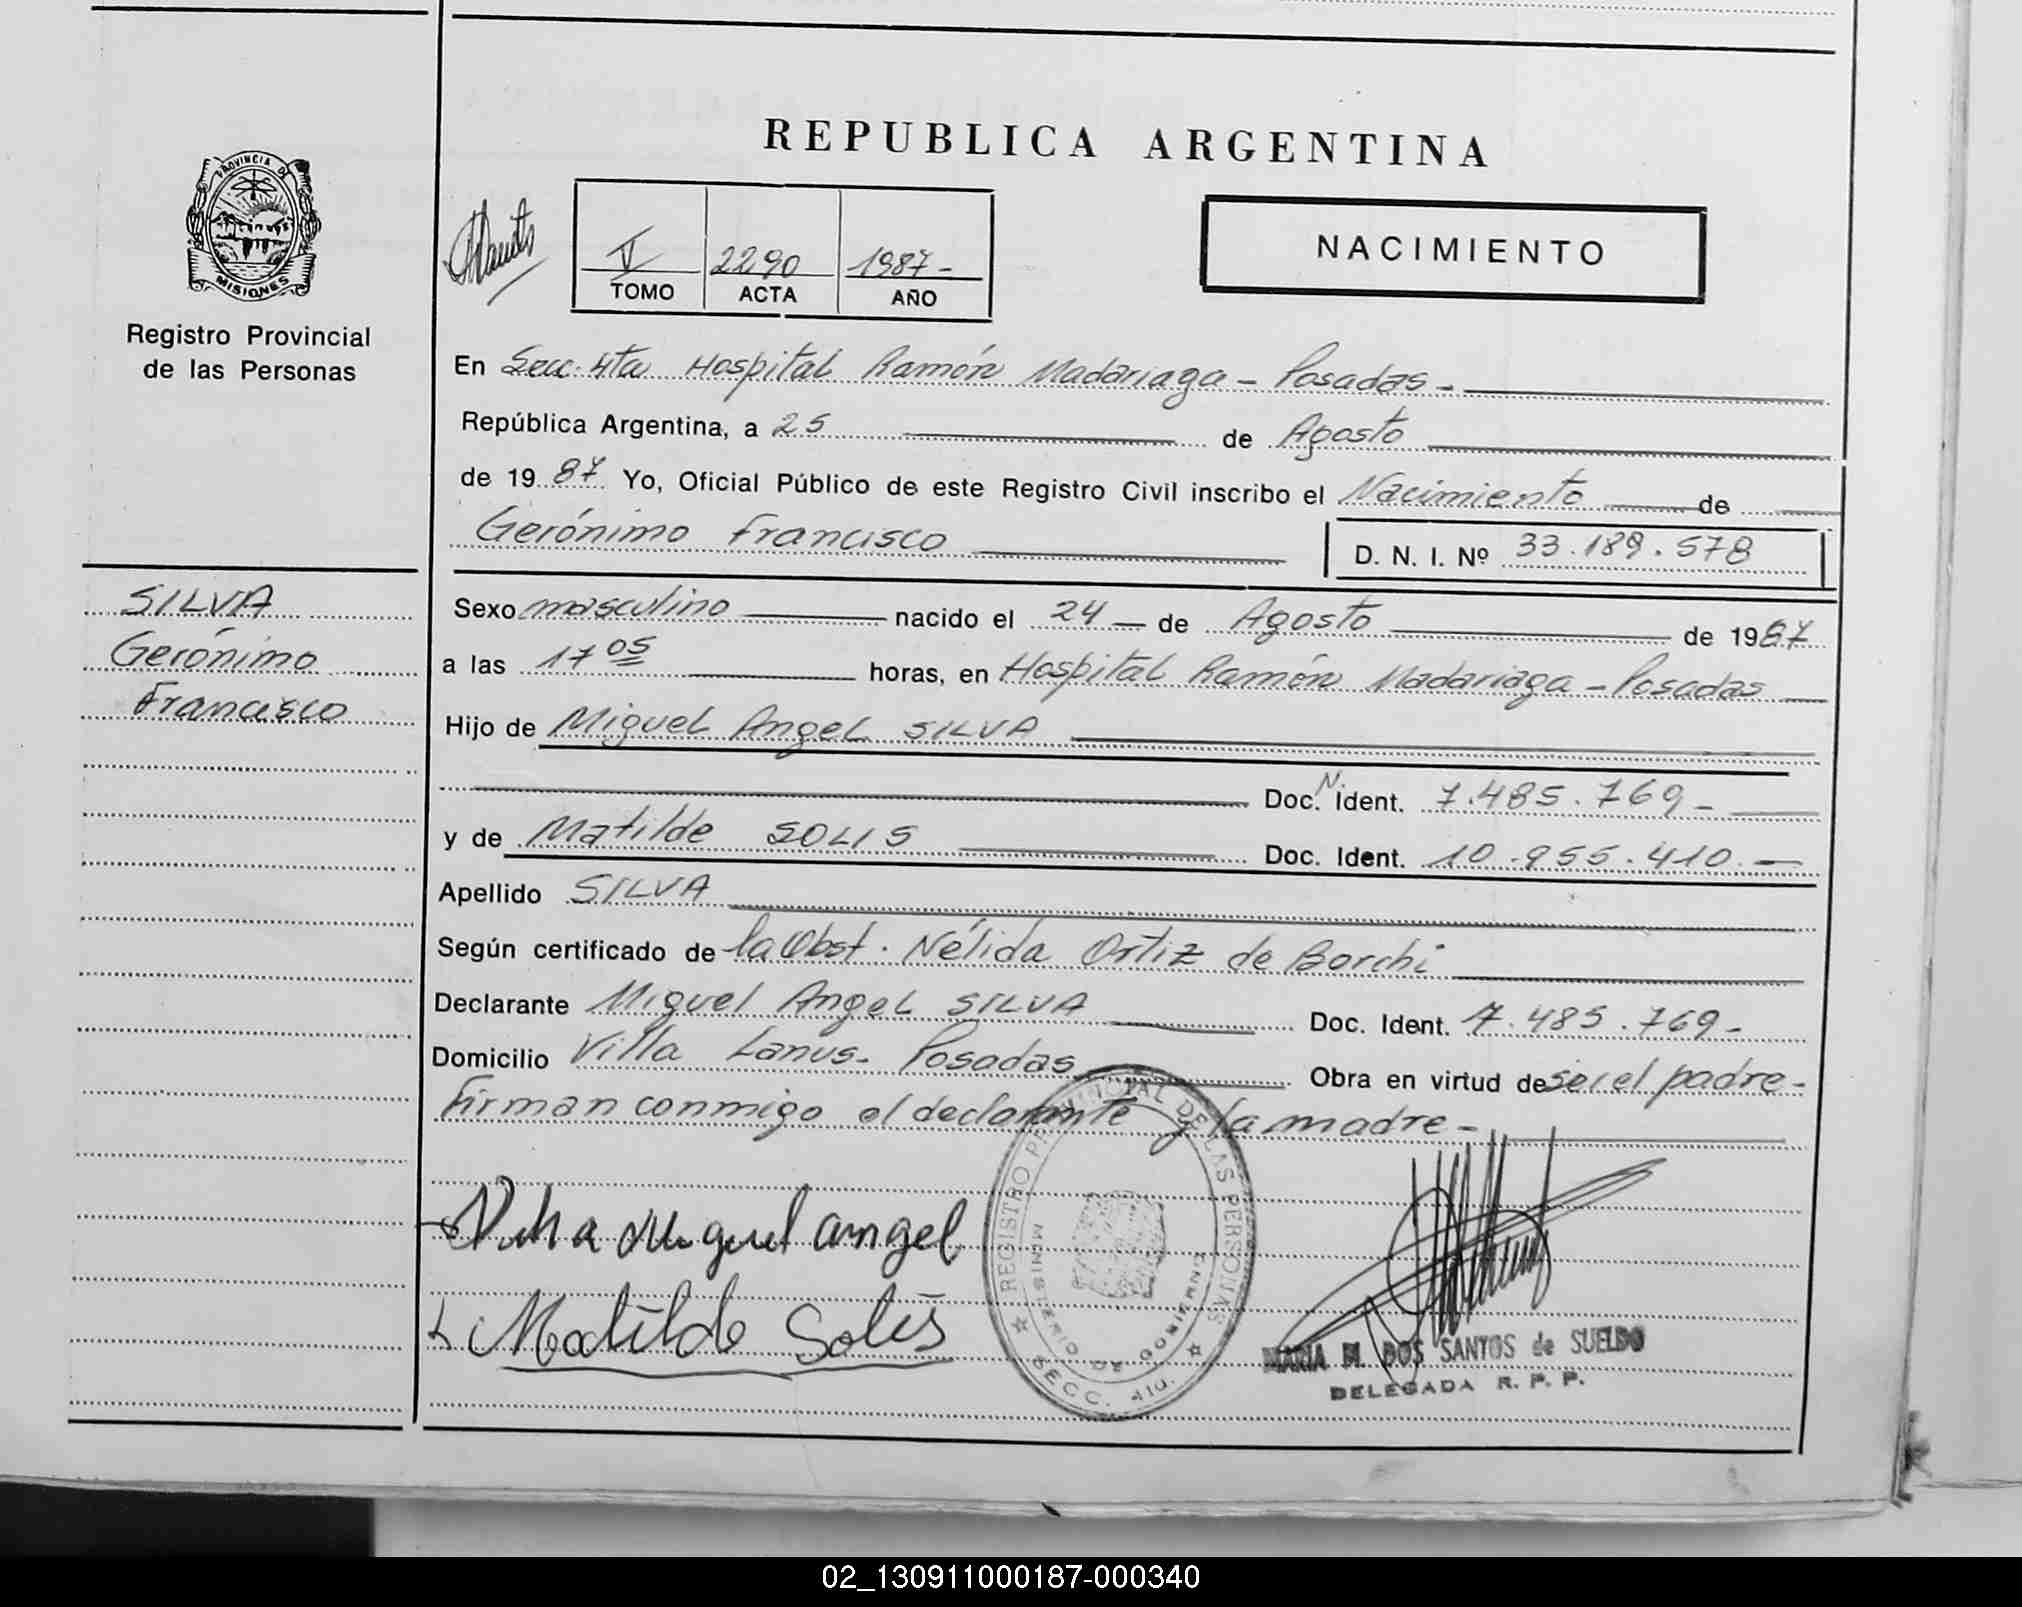 REPUBLICA ARGENTINA
PROVINCIA DE
MISIONES
Registro Provincial
de las Personas
V 2290 1987-
TOMO ACTA AÑO
NACIMIENTO
En Secc. 4ta Hospital Ramón Madariaga - Posadas -
República Argentina, a 25 de Agosto
de 1987 Yo, Oficial Público de este Registro Civil inscribo el Nacimiento de
Gerónimo Francisco D. N. I. Nº 33.189.578
SILVA
Gerónimo
Francisco
Sexo masculino nacido el 24 — de Agosto de 1987
a las 17 05 horas, en Hospital Ramón Madariaga - Posadas
Hijo de Miguel Angel SILVA
Doc. N. Ident. 7.485.769 -
y de Matilde SOLIS Doc. Ident. 10.955.410. —
Apellido SILVA
Según certificado de la Obst. Nélida Ortiz de Borchi
Declarante Miguel Angel SILVA Doc. Ident. 7.485.769 -
Domicilio Villa Lanus - Posadas Obra en virtud de ser el padre -
Firman conmigo el declarante y la madre -
Silva Miguel angel
Matilde Solis
REGISTRO PROVINCIAL DE LAS PERSONAS
MINISTERIO DE GOBIERNO
SECC. 4ta.
MARIA M. DOS SANTOS de SUELDO
DELEGADA R. P. P.
02_130911000187-000340